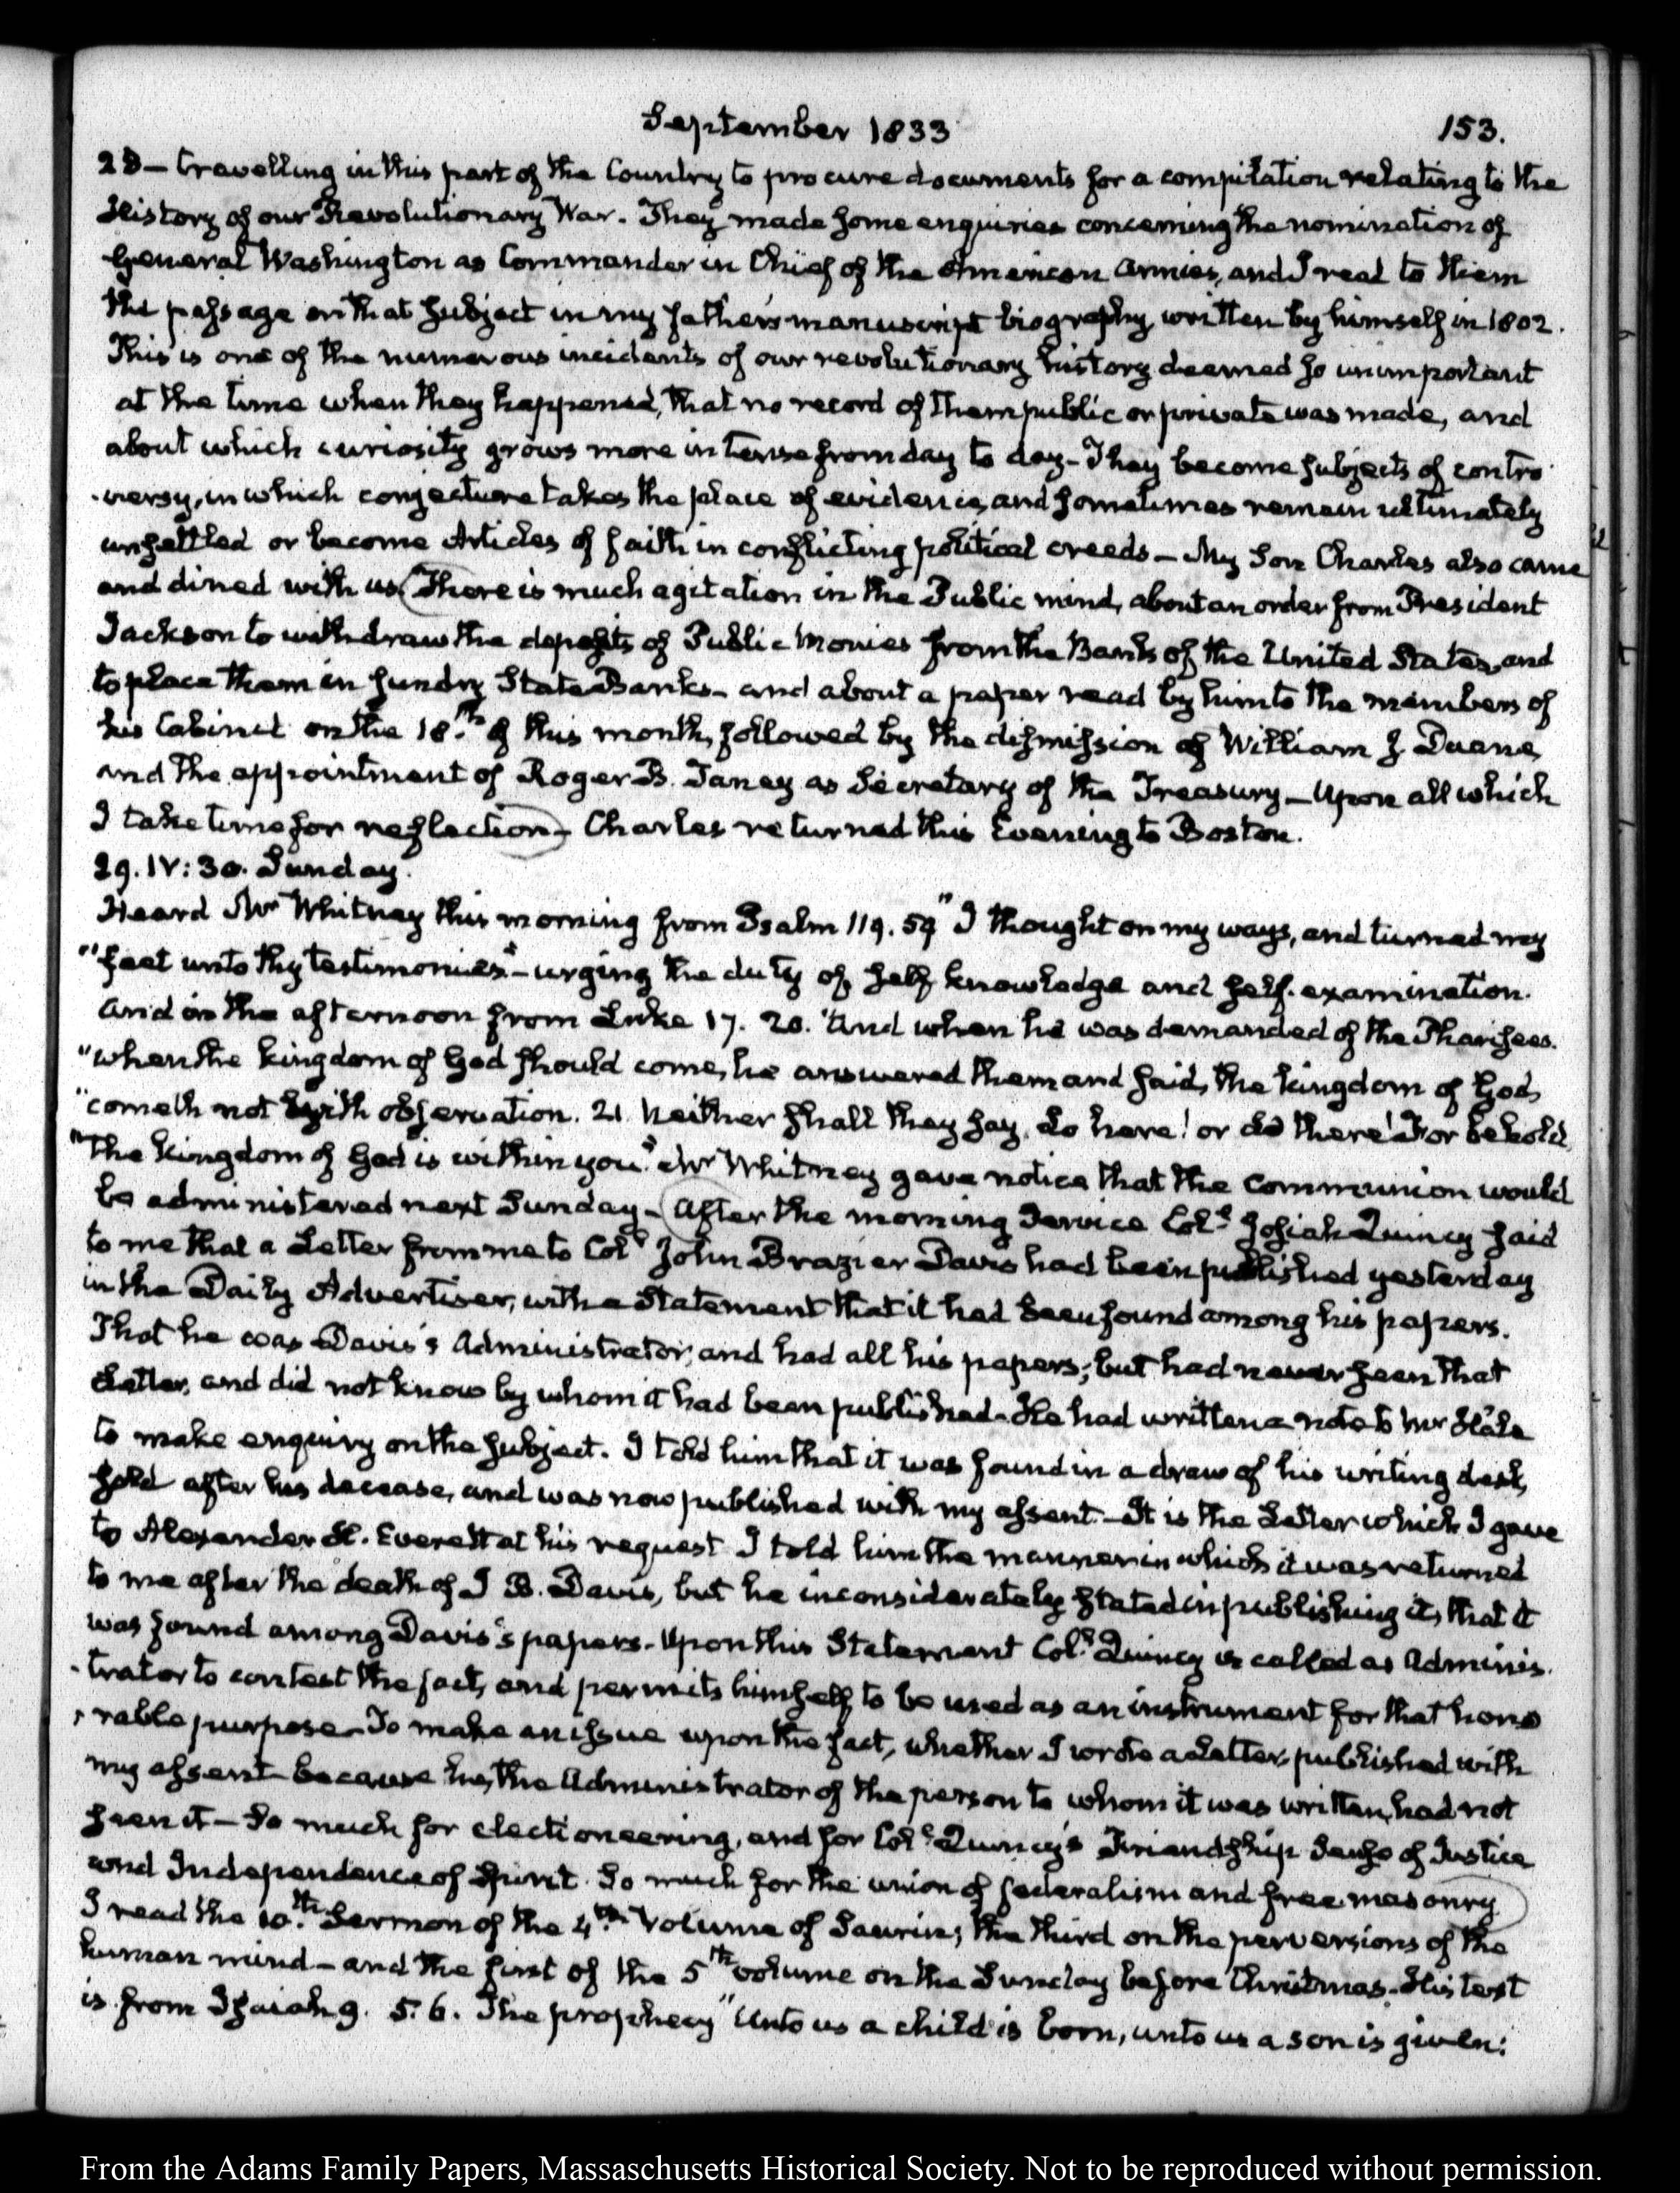 September 1833
153.
28 — travelling in this part of the Country to procure documents for a compilation relating to the
History of our Revolutionary War. They made some enquiries concerning the nomination of
General Washington as Commander in Chief of the American armies, and I read to them
the passage on that subject in my father's manuscript biography written by himself in 1802.
This is one of the numerous incidents of our revolutionary history deemed so unimportant
at the time when they happened, that no record of them public or private was made, and
about which curiosity grows more intense from day to day - They become subjects of contro
-versy, in which conjecture takes the place of evidence, and sometimes remain ultimately
unsettled or become Articles of faith in conflicting political creeds — My Son Charles also came
and dined with us. There is much agitation in the Public mind, about an order from President
Jackson to withdraw the deposits of Public Monies from the Bank of the United States, and
to place them in sundry State Banks - and about a paper read by him to the members of
his Cabinet on the 18.th of this month, followed by the dismission of William J Duane,
and the appointment of Roger B. Taney as Secretary of the Treasury — Upon all which
I take time for reflection - Charles returned this Evening to Boston.
29. IV: 30. Sunday.
Heard Mr Whitney this morning from Psalm 119. 59 "I thought on my ways, and turned my
"feet unto thy testimonies" - urging the duty of self knowledge and self-examination.
and in the afternoon from Luke 17. 20. "And when he was demanded of the Pharisees.
"when the kingdom of God should come, he answered them and said, the kingdom of God,
"cometh not with observation. 21. Neither shall they say, Lo here! or Lo there! For behold,
"the kingdom of God is within you." Mr Whitney gave notice that the Communion would
be administered next Sunday - After the morning Service Col.l Josiah Quincy said
to me that a Letter from me to Col.l John Brazier Davis had been published yesterday
in the Daily Advertiser, with a Statement that it had been found among his papers.
That he was Davis's Administrator, and had all his papers; but had never seen that
Letter, and did not know by whom it had been published - He had written a note to Mr Hale
to make enquiry on the subject. I told him that it was found in a draw of his writing desk,
sold after his decease, and was now published with my assent - It is the Letter which I gave
to Alexander H. Everett at his request I told him the manner in which it was returned
to me after the death of J B. Davis, but he inconsiderately stated in publishing it, that it
was found among Davis's papers - Upon this Statement Col.l Quincy is called as Adminis
-trator to contest the fact, and permits himself to be used as an instrument for that hono
-rable purpose - To make an issue upon the fact, whether I wrote a Letter, published with
my assent - because he, the Administrator of the person to whom it was written, had not
seen it - So much for electioneering, and for Col.l Quincy's Friendship Sense of Justice
and Independence of Spirit. So much for the union of federalism and free masonry
I read the 10.th Sermon of the 4.th Volume of Saurin; the third on the perversions of the
human mind - and the first of the 5th volume on the Sunday before Christmas - His text
is from Isaiah 9. 5. 6. The prophecy "Unto us a child is born, unto us a son is given:
From the Adams Family Papers, Massaschusetts Historical Society. Not to be reproduced without permission.